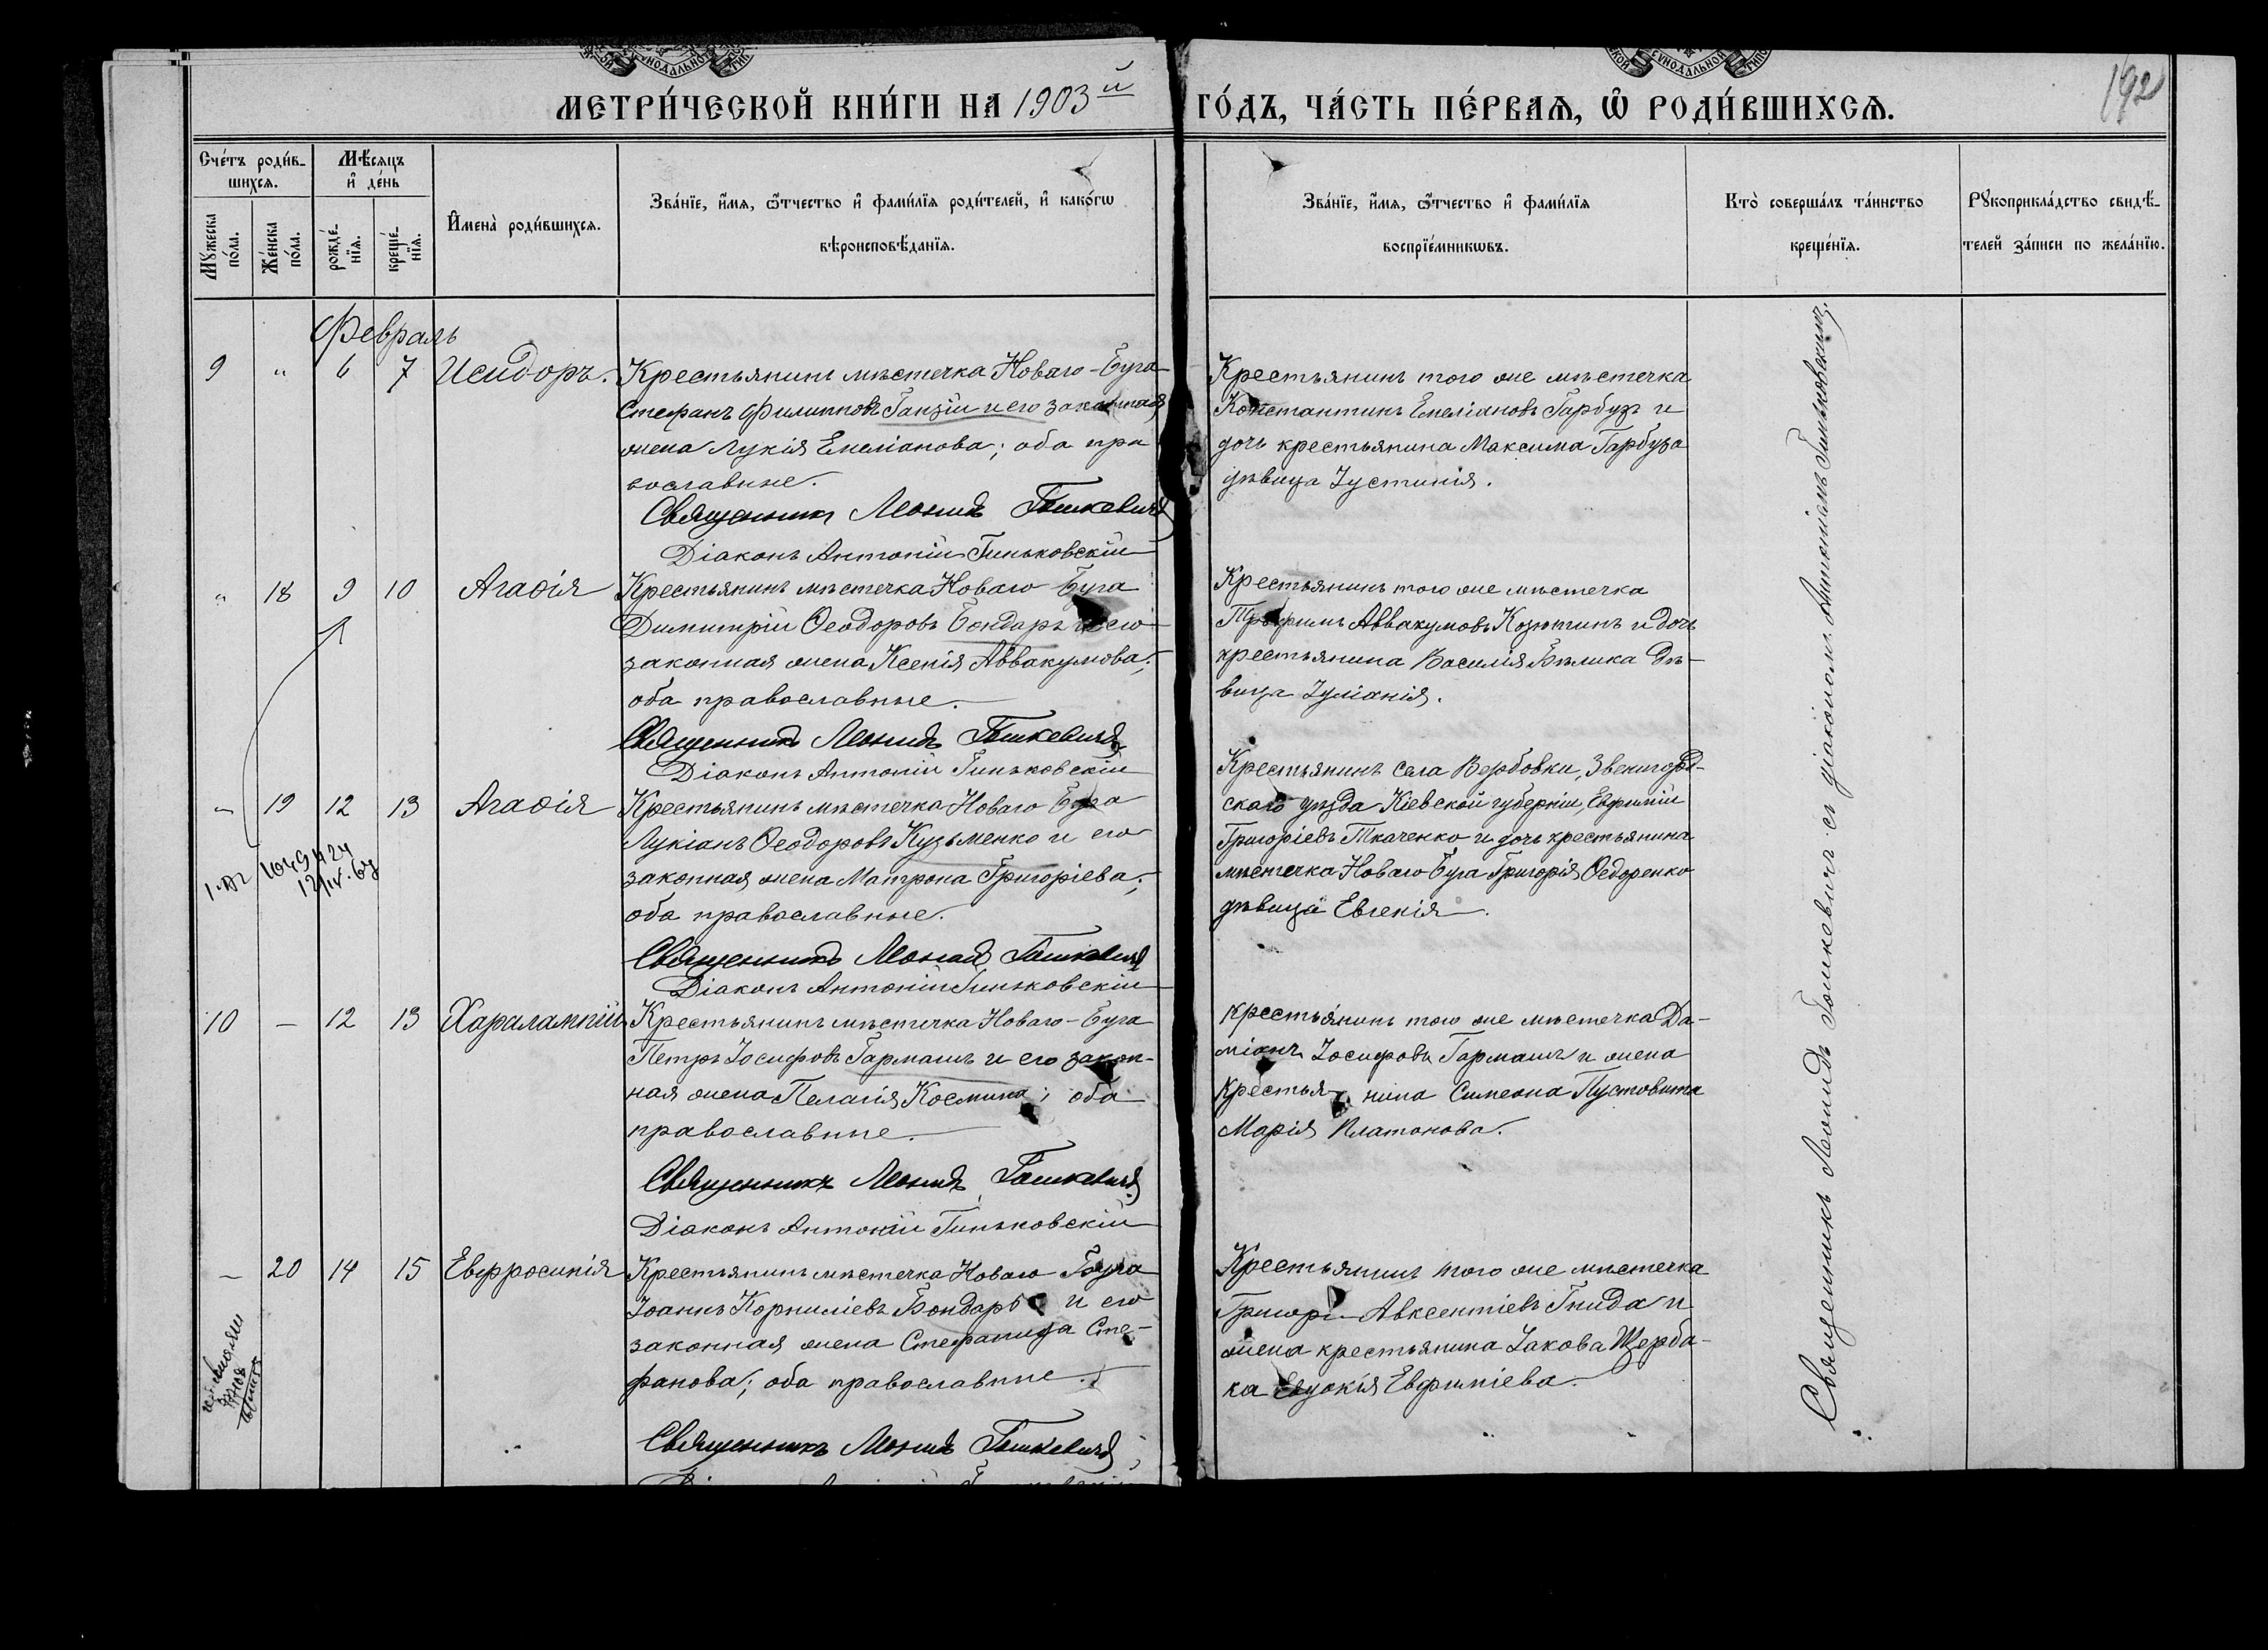 МЕТРИ́ЧЕСКОЙ КНИ́ГИ НА 1903й ГО́ДЪ, ЧА́СТЬ ПЕ́РВАЯ, Ѿ РОДИ́ВШИХСЯ.
192
Сче́тъ роди́в-
шихся.
Мѣ́сяцъ
и де́нь
Мꙋ́жеска
по́ла.
Же́нска
по́ла.
рожде́-
нїя.
креще́-
нїя.
Имена̀ роди́вшихся.
Зва́нїе, и́мя, ѻ́тчество и фами́лїя роди́телей, и како́гѡ
вѣроисповѣ́данїя.
Зва́нїе, и́мя, ѻ́тчество и фами́лїя
воспрїе́мникѡвъ.
Кто̀ соверша́лъ та́инство
креще́нїя.
Рꙋкоприкла́дство свидѣ́-
телей за́писи по жела́нїю.
Февраль
9 " 6 7 Исидоръ.
Крестьянинъ мѣстечка Новаго-Буга
Стефанъ Филипповъ Ганзій и его законная
жена Лукія Емеліанова; оба пра
вославные.
Священникъ Леонидъ Гошкевичъ
Діаконъ Антоній Гиньковскій
Крестьянинъ того же мѣстечка
Константинъ Емеліановъ Гарбузъ и
дочь крестьянина Максима Гарбуза
дѣвица Іустинія.
" 18 9 10 Агаѳія
Крестьянинъ мѣстечка Новаго Буга
Димитрій Ѳеодоровъ Бондарь и его
законная жена Ксенія Аввакумова;
оба православные.
Священникъ Леонидъ Гошкевичъ
Діаконъ Антоній Гиньковскій
Крестьянинъ того же мѣстечка
Трофимъ Аввакумовъ Козютинъ и дочь
крестьянина Василія Бѣлика дѣ-
вица Іуліанія.
– 19 12 13 Агаѳія
Крестьянинъ мѣстечка Новаго Буга
Лукіанъ Ѳеодоровъ Кузьменко и его
законная жена Матрона Григоріева;
оба православные.
Священникъ Леонидъ Гошкевичъ
Діаконъ Антоній Гиньковскій
Крестьянинъ села Вербовки, Звенигород-
скаго уѣзда Кіевской губерніи, Евфимій
Григоріевъ Ткаченко и дочь крестьянина
мѣстечка Новаго Буга Григорія Ѳедоренко
дѣвица Евгенія.
10 – 12 13 Харалампій
Крестьянинъ мѣстечка Новаго-Буга
Петръ Іосифовъ Гармашъ и его закон-
ная жена Пелагія Космина; оба
православные.
Священникъ Леонидъ Гошкевичъ
Діаконъ Антоній Гиньковскій
крестьянинъ того же мѣстечка Да-
міанъ Іосифовъ Гармашъ и жена
крестья- нина Симеона Пустовита
Марія Платонова.
– 20 14 15 Евфросинія
Крестьянинъ мѣстечка Новаго Буга
Іоаннъ Корниліевъ Бондарь и его
законная жена Стефанида Сте-
фанова; оба православные.
Священникъ Леонидъ Гошкевичъ
Крестьянинъ того же мѣстечка
Григорі Авксентіевъ Гнида и
жена крестьянина Іакова Щерба-
ка Евдокія Евфиміева.
Священникъ Леонидъ Гошкевичъ съ діакономъ Антоніемъ Гиньковскимъ.